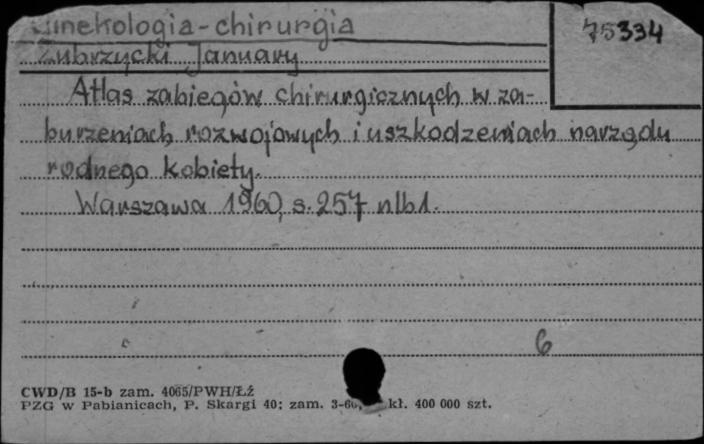 Ginekologia-chirurgia
75334
Zubrzycki January
Atlas zabiegów chirurgicznych w za-
burzeniach rozwojowych i uszkodzeniach narządu
rodnego kobiety.
Warszawa 1960, s. 257 nlb1.
6
CWD/B 15-b zam. 4065/PWH/Łź
PZG w Pabianicach, P. Skargi 40; zam. 3-60, kł. 400 000 szt.